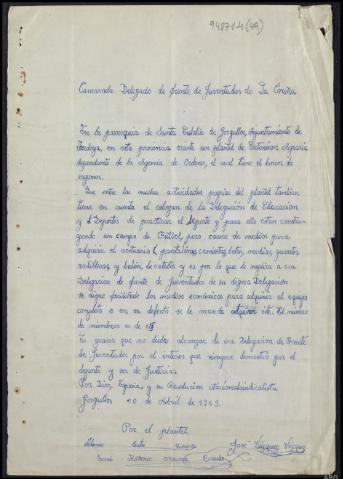 Camarada Delegado de Frente de Juventudes de La Coruña
En la parroquia de Santa Eulalia de Gorgullos, Ayuntamiento de
Tordoya, en esta provincia existe un plantel de Extensión Agraria
dependiente de la Agencia de Ordenes, el cual tiene el honor de
exponer.
Que entre las muchas actividades propias del plantel tambien
tiene en cuenta el eslogan de la Delegación de Educación
y Deportes de practicar el deporte y para ello estan constru-
yendo un campo de Futbol, pero carece de medios para
adquirir el vestuario (pantalones, camisetas, botas, medias, guantes
rodilleras y balón, de celebre y es por lo que le suplica a esa
Delegación de frente de Juventudes de su digna Delegación
se digne facilitarle los medios económicos para adquirir el equipo
completo o en su defecto se le mande adquirir etc. El numero
de miembros es de 15
Es gracia que no dudo alcanzar de esa Delegación de Frente
de Juventudes por el interes que siempre demostró por el
deporte y ser de Justicia.
Por Dios, España, y su Revolución Nacionalsindicalista
Gorgullos 20 de Abril de 1969.
Por el plantel
José Vazquez